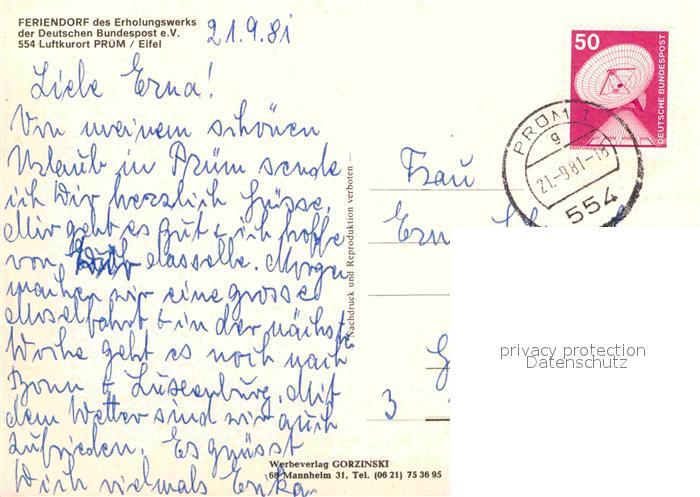 FERIENDORF des Erholungswerks
der Deutschen Bundespost e.V.
554 Luftkurort PRÜM / Eifel
21.9.81
Liebe Erna!
Von meinem schönen
Urlaub in Prüm sende
ich Dir herzlich Grüsse.
Mir geht es gut + ich hoffe
von Dir dasselbe. Morgen
machen wir eine grosse
Moselfahrt + in der nächst.
Woche geht es noch nach
Bonn + Luxemburg. Mit
dem Wetter sind wir auch
zufrieden. Es grüsst
Dich vielmals Erika.
Nachdruck und Reproduktion verboten
Werbeverlag GORZINSKI
68 Mannheim 31, Tel. (06 21) 75 36 95
50
DEUTSCHE BUNDESPOST
PRÜM 1
g
21.-9.81-18
554
Frau
3
privacy protection
Datenschutz